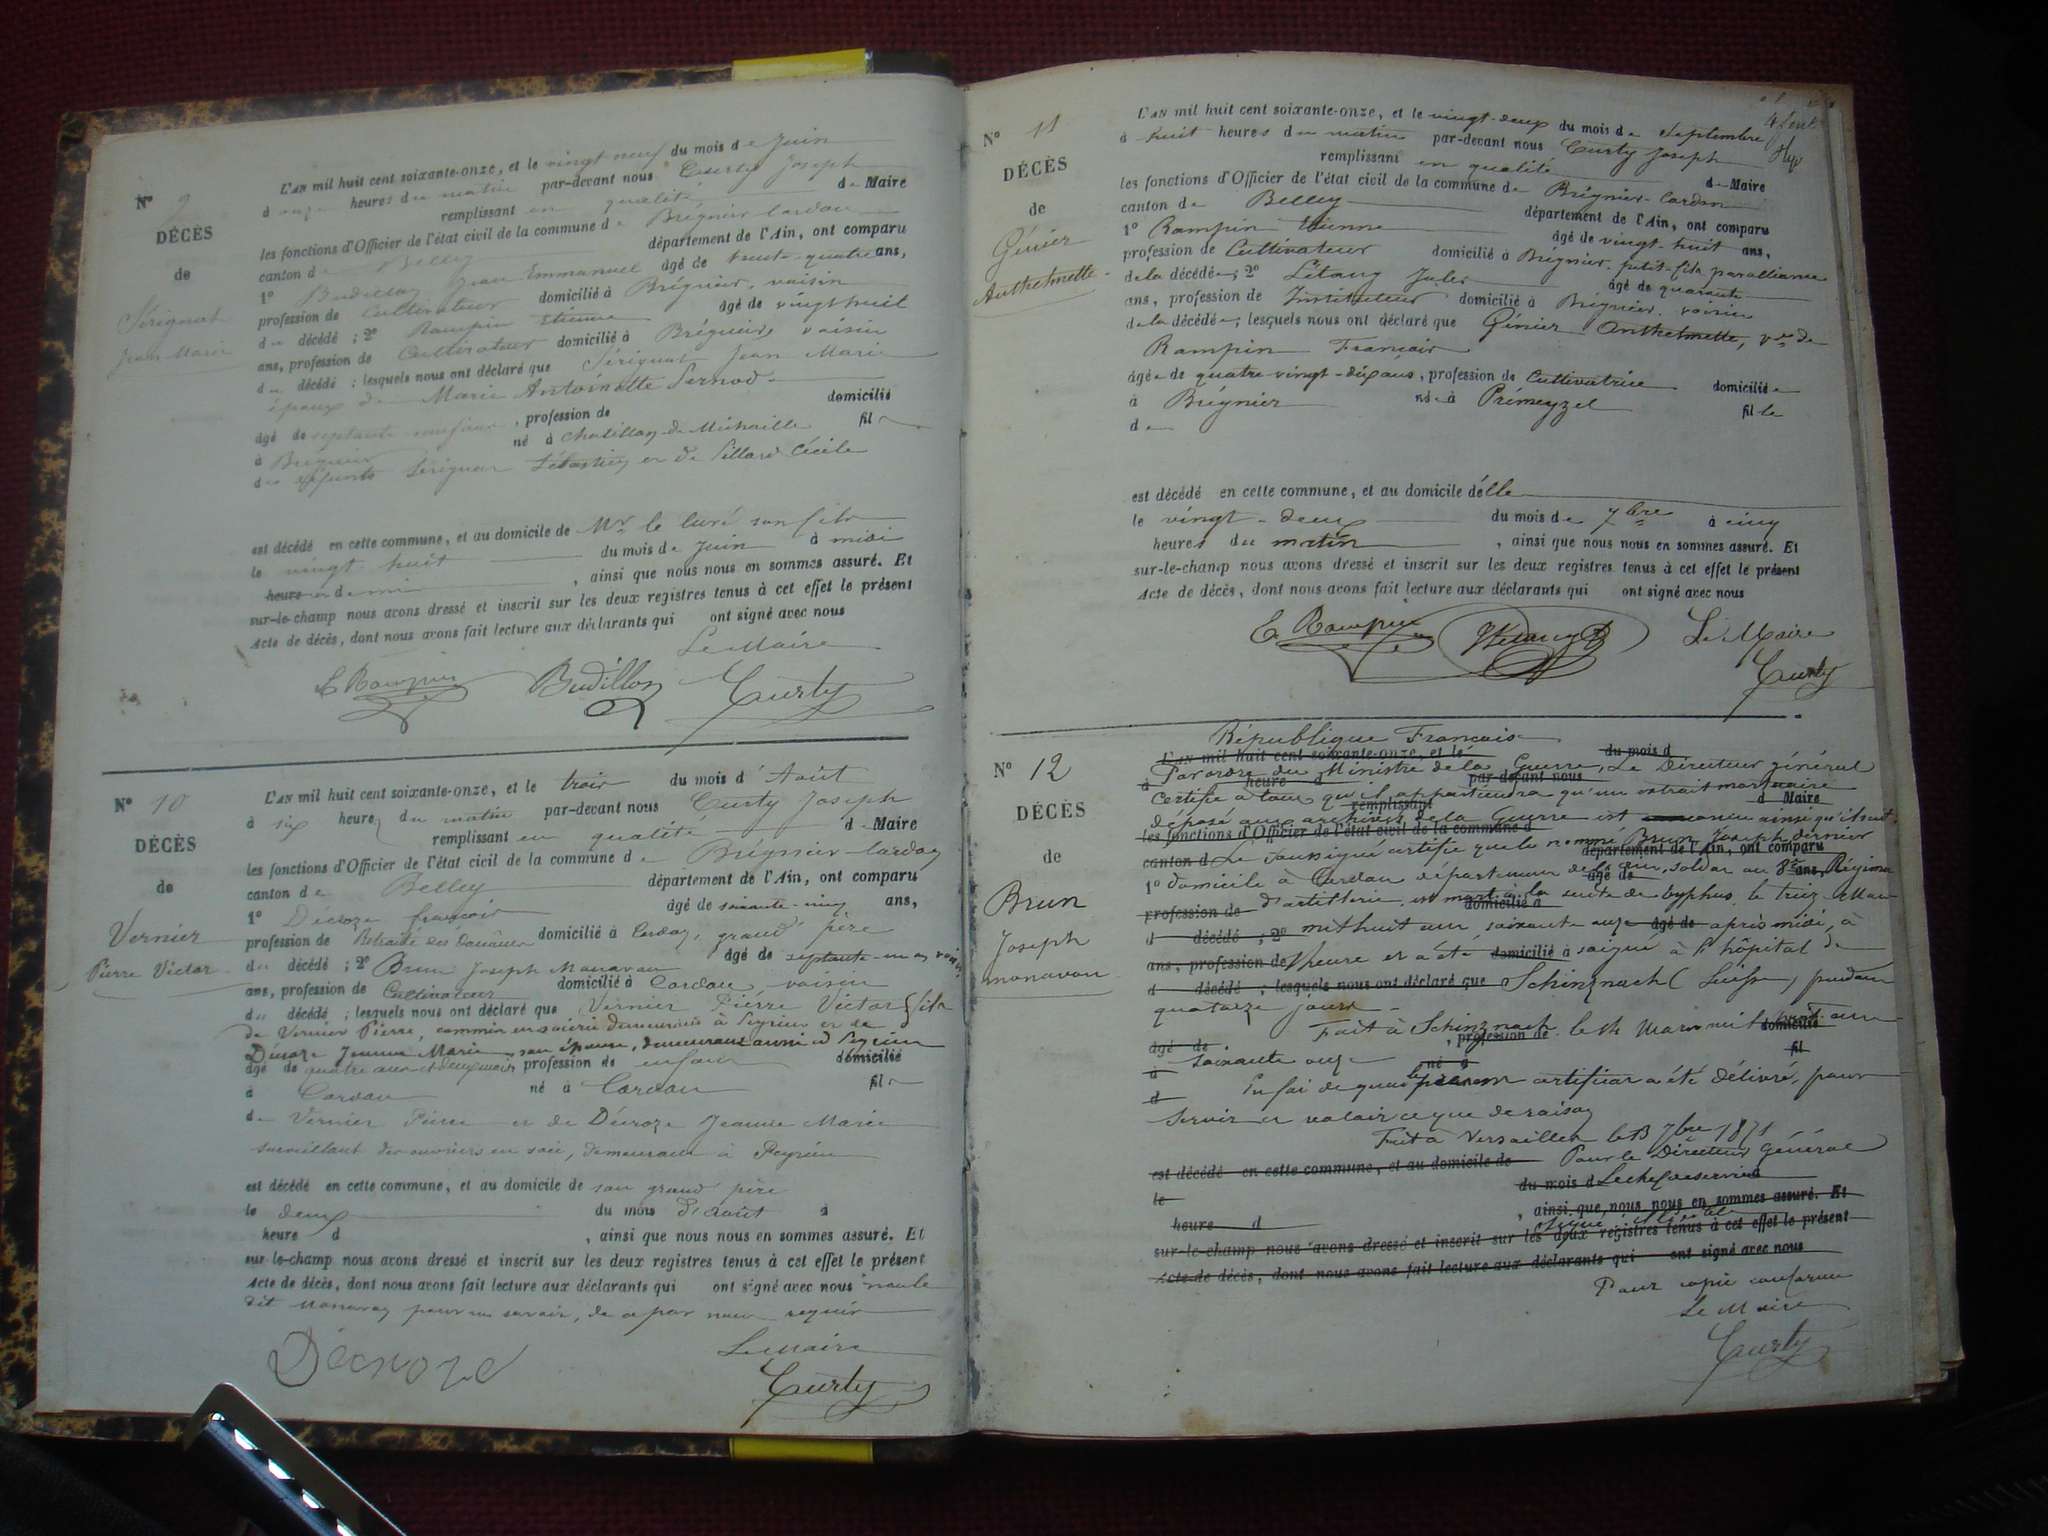 N° 9
DÉCÈS
de
Sérignat
Jean Marie
L'AN mil huit cent soixante-onze, et le vingt neuf du mois de Juin
à onze heures du matin par-devant nous Curty Joseph
remplissant en qualité de Maire
les fonctions d'Officier de l'état civil de la commune de Brégnier Cordon
canton de Belley département de l'Ain, ont comparu
1° Budillon Jean Emmanuel âgé de trente-quatre ans,
profession de Cultivateur domicilié à Brégnier, voisin
du décédé ; 2° Rampin Etienne âgé de vingt huit
ans, profession de Cultivateur domicilié à Brégnier, voisin
du décédé ; lesquels nous ont déclaré que Sérignat Jean Marie
époux de Marie Antoinette Pernod
âgé de septante neuf ans, profession de domicilié
à Brégnier né à Chatillon de Michaille fils
des défunts Sérignat Sébastien et de Pillard Cécile
est décédé en cette commune, et au domicile de Mr le Curé son fils
le vingt huit du mois de Juin à midi
heure et demi , ainsi que nous nous en sommes assuré. Et
sur-le-champ nous avons dressé et inscrit sur les deux registres tenus à cet effet le présent
Acte de décès, dont nous avons fait lecture aux déclarants qui ont signé avec nous
Le Maire
E Rampin Budillon Curty
N° 10
DÉCÈS
de
Vernier
Pierre Victor
L'AN mil huit cent soixante-onze, et le trois du mois d'Août
à six heures du matin par-devant nous Curty Joseph
remplissant en qualité de Maire
les fonctions d'Officier de l'état civil de la commune de Brégnier-Cordon
canton de Belley département de l'Ain, ont comparu
1° Décroze françois âgé de soixante-cinq ans,
profession de Retraité des douanes domicilié à Cordon, grand père
du décédé ; 2° Brun Joseph Monavon âgé de septante-un ans voisin
ans, profession de Cultivateur domicilié à Cordon voisin
du décédé ; lesquels nous ont déclaré que Vernier Pierre Victor fils
de Vernier Pierre, commis en soierie demeurant à Peyrieu et de
Décroze Jeanne Marie son épouse, demeurant aussi à Peyrieu
âgé de quatre ans et deux mois profession de enfant domicilié
à Cordon né à Cordon fils
de Vernier Pierre et de Décroze Jeanne Marie
surveillant des ouvriers en soie, demeurant à Peyrieu
est décédé en cette commune, et au domicile de son grand père
le deux du mois d'août à
heure d , ainsi que nous nous en sommes assuré. Et
sur-le-champ nous avons dressé et inscrit sur les deux registres tenus à cet effet le présent
Acte de décès, dont nous avons fait lecture aux déclarants qui ont signé avec nous non le
dit Monavon pour ne savoir, de ce par nous requis
Le Maire
Décroze Curty
N° 11
DÉCÈS
de
Génier
Anthelmette
L'AN mil huit cent soixante-onze, et le vingt-deux du mois de Septembre
à huit heures du matin par-devant nous Curty Joseph
remplissant en qualité de Maire
les fonctions d'Officier de l'état civil de la commune de Brégnier-Cordon
canton de Belley département de l'Ain, ont comparu
1° Rampin Etienne âgé de vingt-huit ans,
profession de Cultivateur domicilié à Brégnier petit-fils par alliance
de la décédée ; 2° Létang Jules âgé de quarante
ans, profession de Instituteur domicilié à Brégnier, voisin
de la décédée ; lesquels nous ont déclaré que Génier Anthelmette, vve de
Rampin François
âgée de quatre vingt-dix ans, profession de Cultivatrice domiciliée
à Brégnier née à Prémeyzel fille
de
est décédé en cette commune, et au domicile d'elle
le vingt-deux du mois de 7bre à cinq
heures du matin , ainsi que nous nous en sommes assuré. Et
sur-le-champ nous avons dressé et inscrit sur les deux registres tenus à cet effet le présent
Acte de décès, dont nous avons fait lecture aux déclarants qui ont signé avec nous
E. Rampin JLétang Le Maire
Curty
N° 12
DÉCÈS
de
Brun
Joseph
monavon
République Française
Par ordre du Ministre de la Guerre, Le Directeur général
certifie à tous qu'il appartiendra qu'un extrait mortuaire
déposé aux archives de la Guerre est conçu ainsi qu'il suit.
Le soussigné certifie que le nommé Brun Joseph dernier
domicile à Cordon département de l'Ain, soldat au 8e Régiment
d'artillerie est mort à la suite de typhus le treize Mars
mil huit cent soixante onze après midi, à
1 heure et a été soigné à l'hôpital de
Schinznach (Suisse) pendant
quatorze jours.
Fait à Schinznach le 14 Mars mil huit cent
soixante onze
En foi de quoi le présent certificat a été délivré, pour
servir et valoir ce que de raison
Fait à Versailles le 13 7bre 1871
Pour le Directeur Général
Le chef de service
signé illisible
Pour copie conforme
Le Maire
Curty